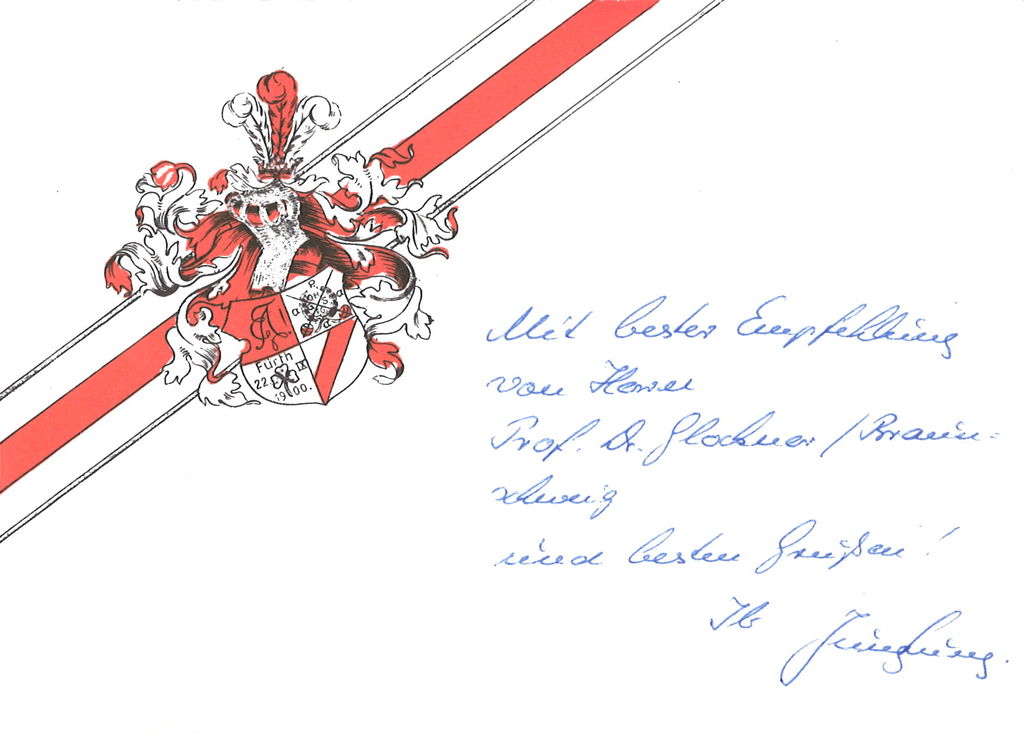 Fürth
22 IX
1900.
Mit bester Empfehlung
von Herrn
Prof. Dr. Glockner / Braun=
schweig
und besten Grüßen!
Ihr